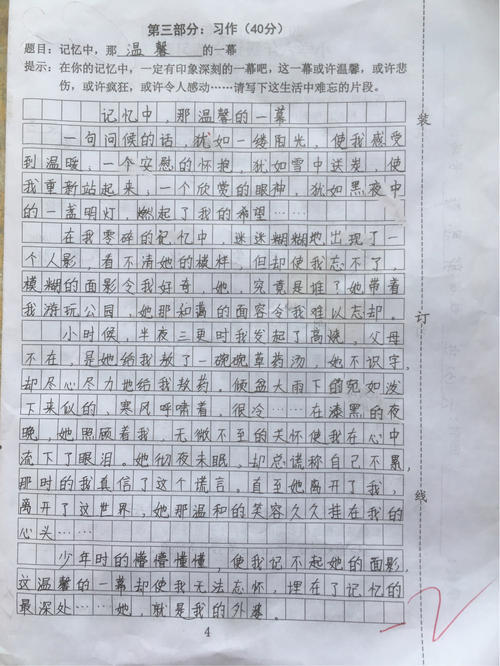 第三部分：习作（40分）
题目：记忆中，那 温馨 的一幕
提示：在你的记忆中，一定有印象深刻的一幕吧，这一幕或许温馨，或许悲
伤，或许疯狂，或许令人感动……请写下这生活中难忘的片段。
记忆中，那温馨的一幕
一句问候的话，犹如一缕阳光，使我感受
到温暖，一个安慰的怀抱，犹如雪中送炭，使
我重新站起来，一个欣赏的眼神，犹如黑夜中
的一盏明灯，燃起了我的希望……
在我零碎的记忆中，迷迷糊糊地出现了一
个人影，看不清她的模样，但却使我忘不了，
模糊的面影令我好奇，她，究竟是谁？她带着
我游玩公园，她那和蔼的面容令我难以忘却。
小时候，半夜三更时我发起了高烧，父母
不在，是她给我熬了一碗碗草药汤，她不识字，
却尽心尽力地给我熬药。倾盆大雨下的宛如泼
下来似的、寒风呼啸着，很冷……在漆黑的夜
晚，她照顾着我，无微不至的关怀使我在心中
流下了眼泪。她彻夜未眠，却总谎称自己不累，
那时的我真信了这个谎言。直至她离开了我，
离开了这世界，她那温和的笑容久久挂在我的
心头……
少年时的懵懵懂懂，使我记不起她的面影，
这温馨的一幕却使我无法忘怀，埋在了记忆的
最深处……她，就是我的外婆。
4
装
订
线